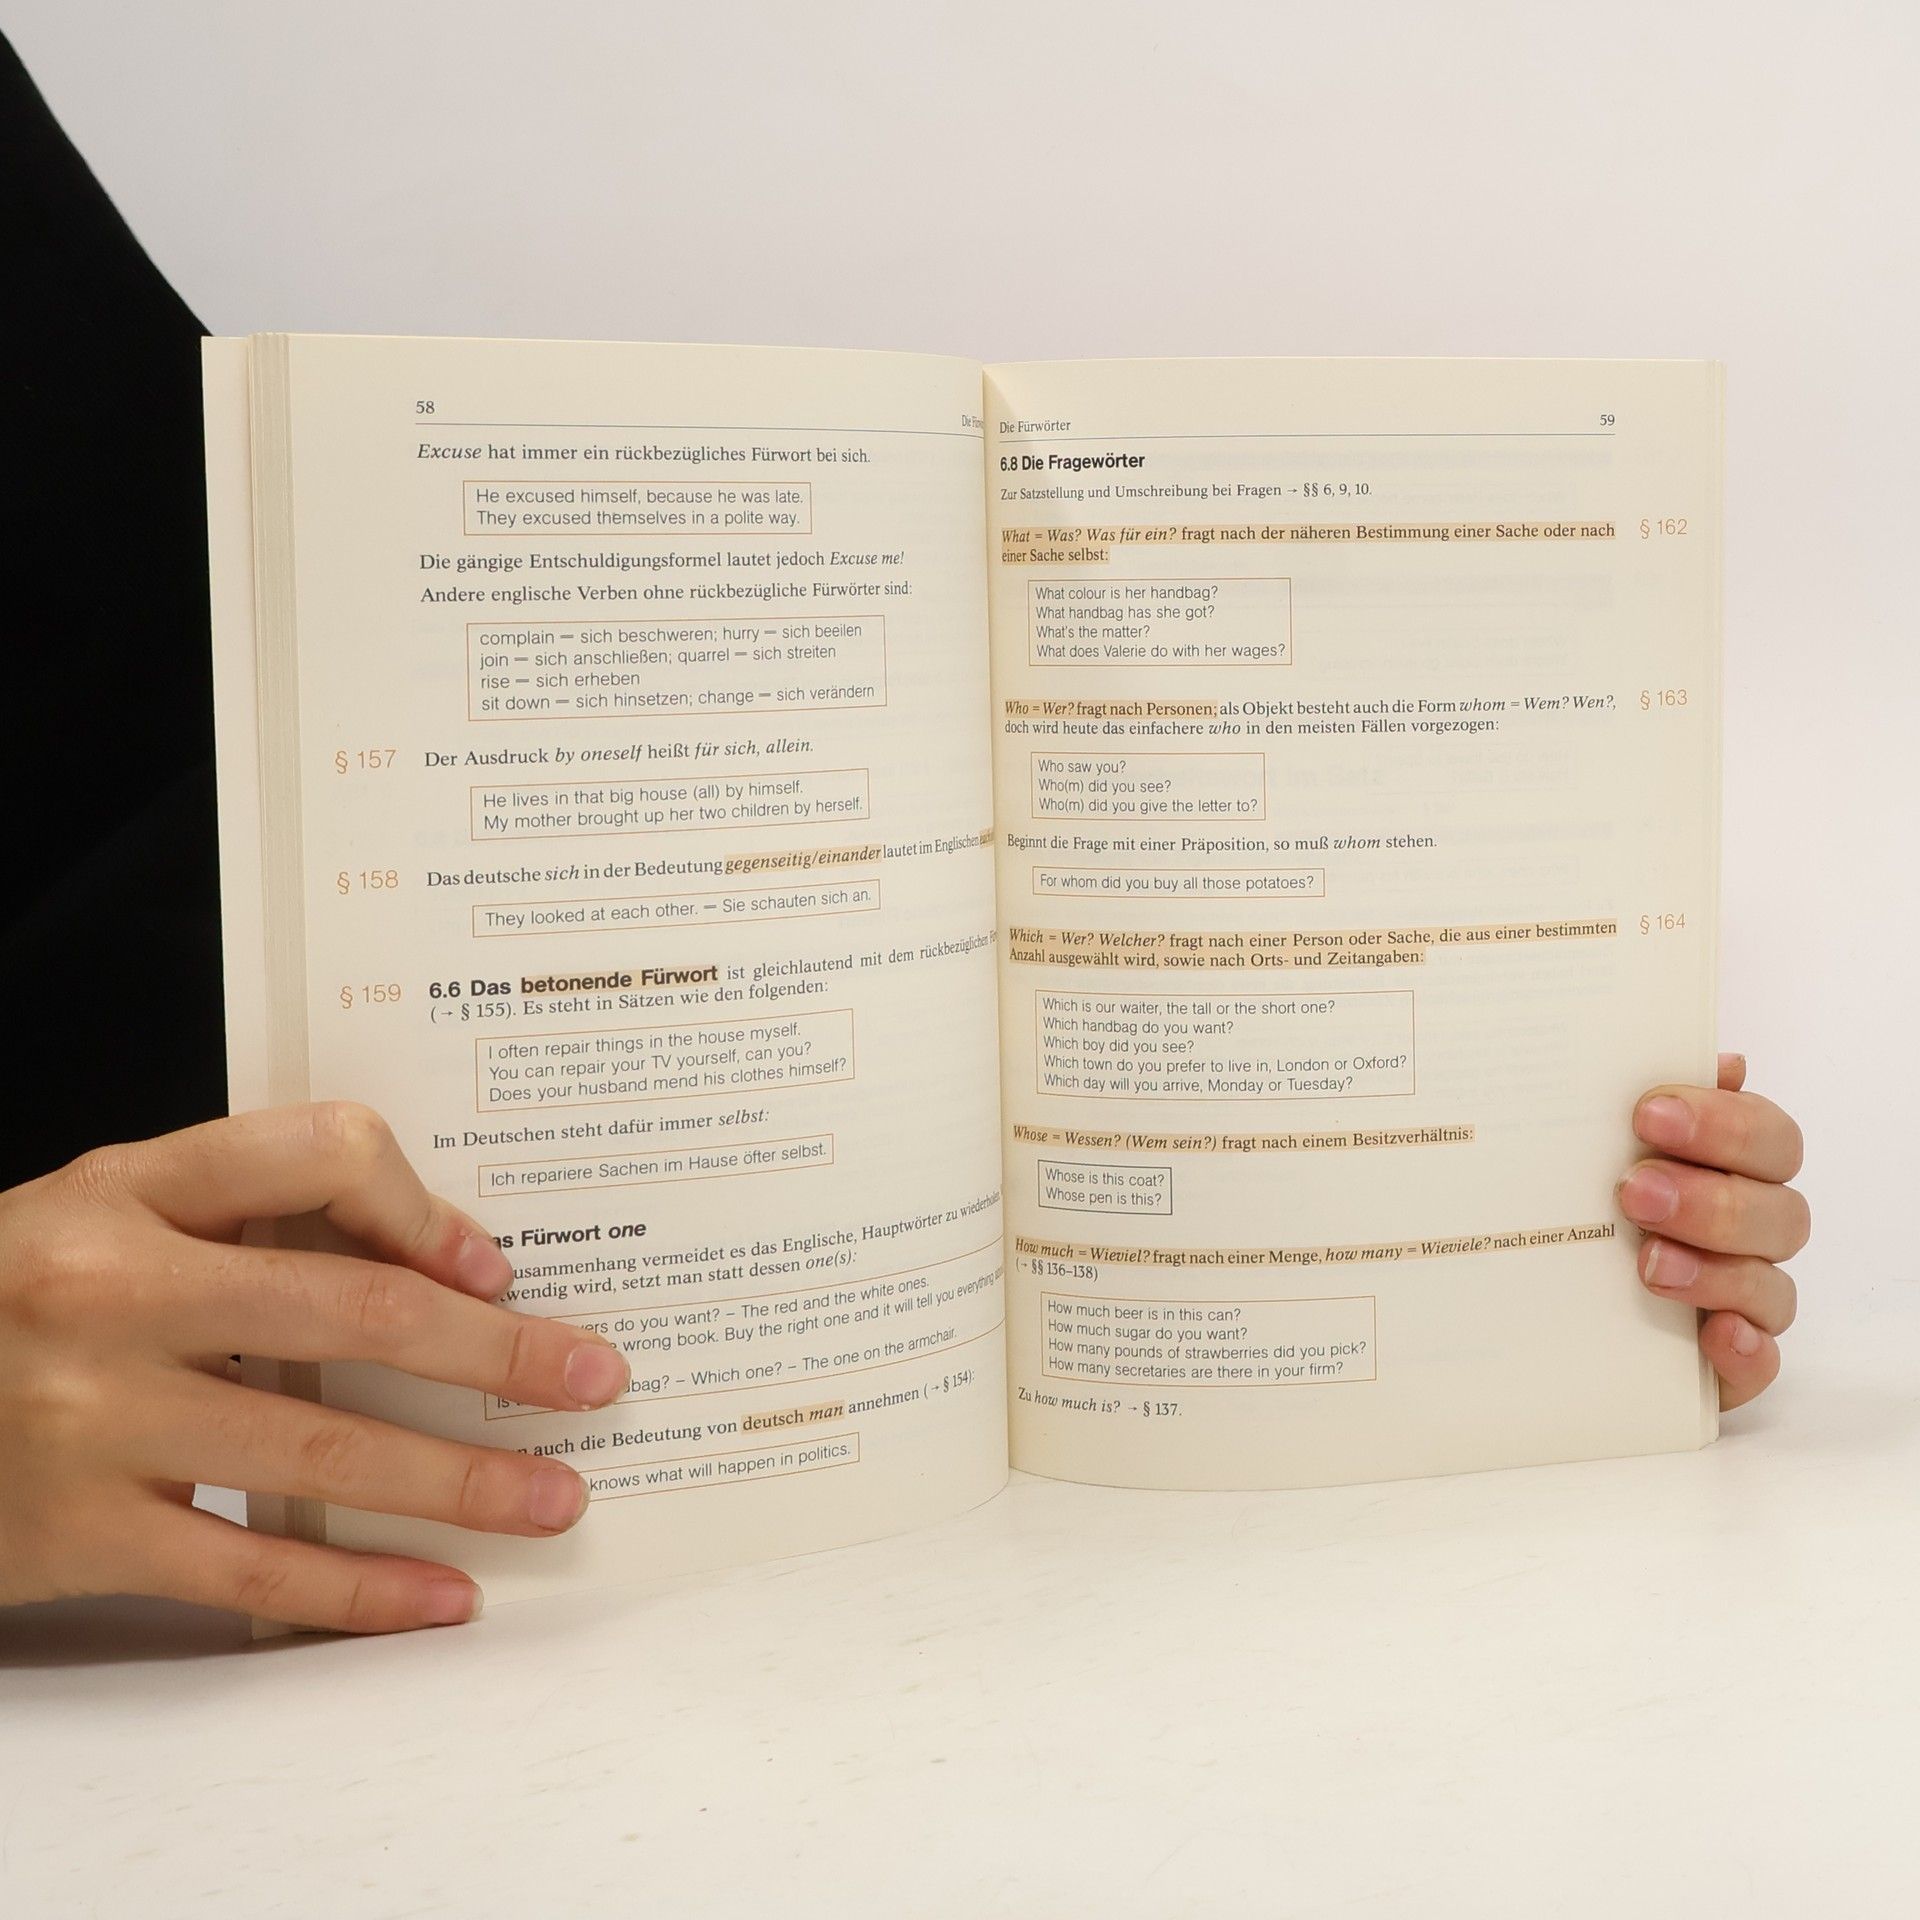 58
Excuse hat immer ein rückbezügliches Fürwort bei sich.
He excused himself, because he was late.
They excused themselves in a polite way.
Die gängige Entschuldigungsformel lautet jedoch Excuse me!
Andere englische Verben ohne rückbezügliche Fürwörter sind:
complain – sich beschweren; hurry – sich beeilen
join – sich anschließen; quarrel – sich streiten
rise – sich erheben
sit down – sich hinsetzen; change – sich verändern
§ 157 Der Ausdruck by oneself heißt für sich, allein.
He lives in that big house (all) by himself.
My mother brought up her two children by herself.
§ 158 Das deutsche sich in der Bedeutung gegenseitig/einander lautet im Englischen
They looked at each other. – Sie schauten sich an.
§ 159 6.6 Das betonende Fürwort ist gleichlautend mit dem rückbezüglichen
(→ § 155). Es steht in Sätzen wie den folgenden:
I often repair things in the house myself.
You can repair your TV yourself, can you?
Does your husband mend his clothes himself?
Im Deutschen steht dafür immer selbst:
Ich repariere Sachen im Hause öfter selbst.
Fürwort one
vermeidet es das Englische, Hauptwörter zu wiederholen
wird, setzt man statt dessen one(s):
do you want? – The red and the white ones.
wrong book. Buy the right one and it will tell you everything
– Which one? – The one on the armchair.
auch die Bedeutung von deutsch man annehmen (→ § 154):
knows what will happen in politics.
Die Fürwörter 59
6.8 Die Fragewörter
Zur Satzstellung und Umschreibung bei Fragen → §§ 6, 9, 10.
What = Was? Was für ein? fragt nach der näheren Bestimmung einer Sache oder nach § 162
einer Sache selbst:
What colour is her handbag?
What handbag has she got?
What's the matter?
What does Valerie do with her wages?
Who = Wer? fragt nach Personen; als Objekt besteht auch die Form whom = Wem? Wen?, § 163
doch wird heute das einfachere who in den meisten Fällen vorgezogen:
Who saw you?
Who(m) did you see?
Who(m) did you give the letter to?
Beginnt die Frage mit einer Präposition, so muß whom stehen.
For whom did you buy all those potatoes?
Which = Wer? Welcher? fragt nach einer Person oder Sache, die aus einer bestimmten § 164
Anzahl ausgewählt wird, sowie nach Orts- und Zeitangaben:
Which is our waiter, the tall or the short one?
Which handbag do you want?
Which boy did you see?
Which town do you prefer to live in, London or Oxford?
Which day will you arrive, Monday or Tuesday?
Whose = Wessen? (Wem sein?) fragt nach einem Besitzverhältnis:
Whose is this coat?
Whose pen is this?
How much = Wieviel? fragt nach einer Menge, how many = Wieviele? nach einer Anzahl
(→ §§ 136–138)
How much beer is in this can?
How much sugar do you want?
How many pounds of strawberries did you pick?
How many secretaries are there in your firm?
Zu how much is? → § 137.